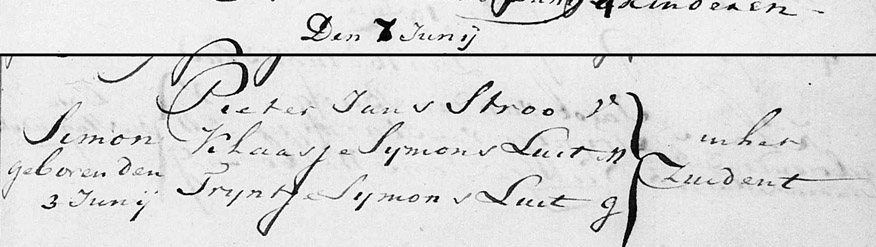 4 kinderen
Den 7 Junij
Pieter Jans Stroo v
Simon Klaasje Symons Luit m in het
geboren den Tryntje Symons Luit g Zuident
3 Junij